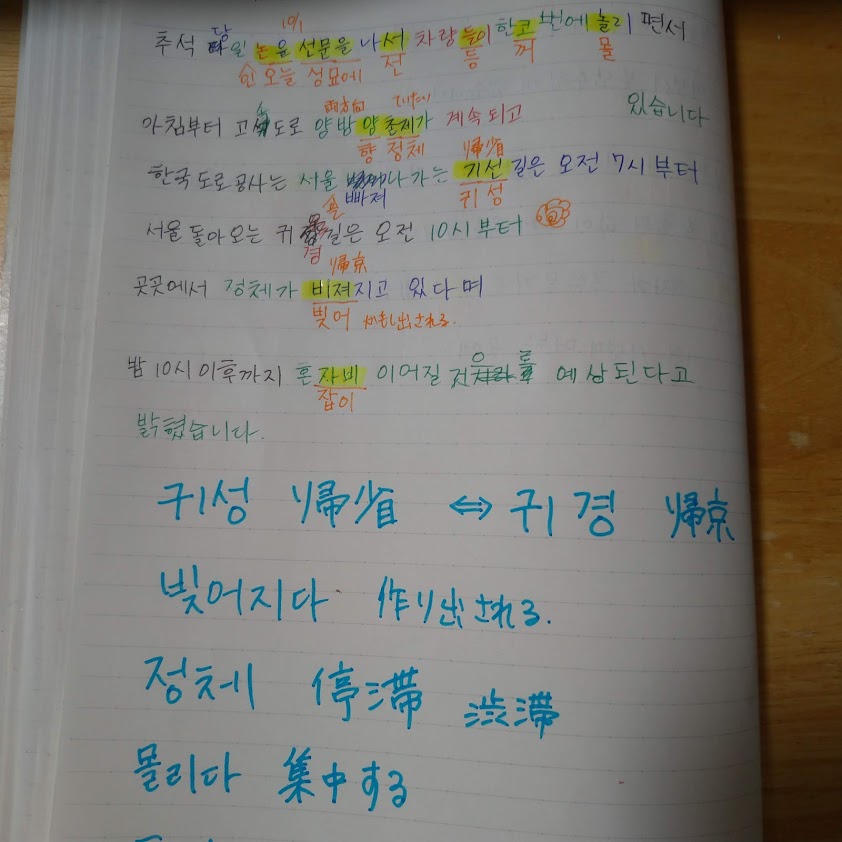 10/1
추석 당일 논윤 선문을 나서 차량들이 한고번에 놀리면서
오늘 성묘에 전 등 꺼 몰
両方向 ていたい
아침부터 고속도로 양방양 촌제가 계속되고 있습니다
향 정체 帰省
한국도로공사는 서울 나가는 기선길은 오전 7시부터
빠져 귀성
서울 돌아오는 귀길은 오전 10시부터
경 帰京
곳곳에서 정체가 비져지고 있다며
빚어 作り出される.
밤 10시 이후까지 혼자비 이어질 것으로 예상된다고
잡이
밝혔습니다.
귀성 帰省 ⇔ 귀경 帰京
빚어지다 作り出される.
정체 停滞 渋滞
몰리다 集中する